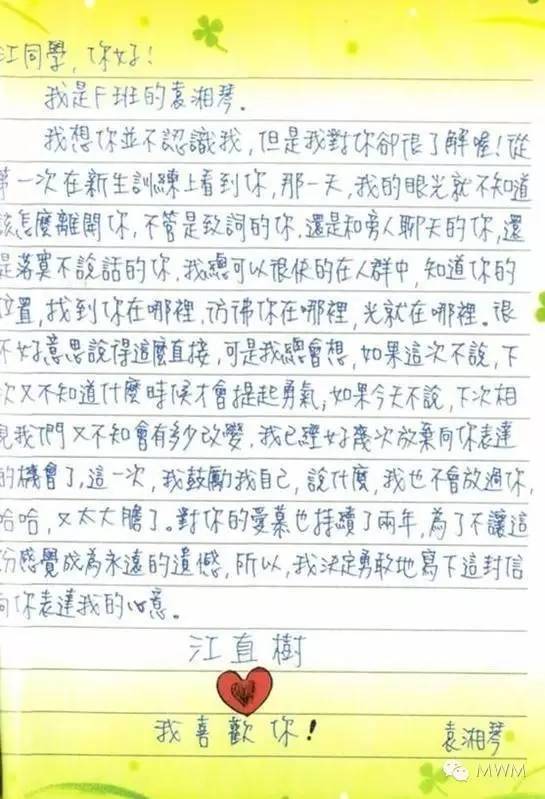 江同學，你好！
我是F班的袁湘琴。
我想你並不認識我，但是我對你卻很了解喔！從
第一次在新生訓練上看到你，那一天，我的眼光就不知道
該怎麼離開你，不管是致詞的你，還是和旁人聊天的你，還
是落寞不說話的你，我總可以很快的在人群中，知道你的
位置，找到你在哪裡，彷彿你在哪裡，光就在哪裡。很
不好意思說得這麼直接，可是我總會想，如果這次不說，下
次又不知道什麼時候才會提起勇氣；如果今天不說，下次相
見我們又不知會有多少改變，我已經好幾次放棄向你表達
的機會了，這一次，我鼓勵我自己，說什麼，我也不會放過你，
哈哈，又太大膽了。對你的愛慕也持續了兩年，為了不讓這
份感覺成為永遠的遺憾，所以，我決定勇敢地寫下這封信
向你表達我的心意。
江直樹
我喜歡你！ 袁湘琴
MWM